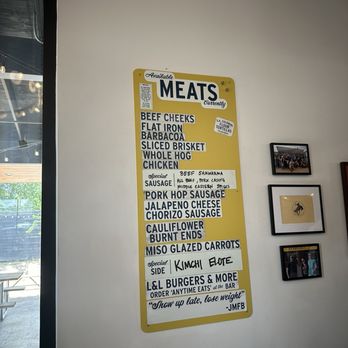 Available
MEATS
Currently
BEEF CHEEKS
FLAT IRON
BARBACOA
SLICED BRISKET
WHOLE HOG
CHICKEN
Special
SAUSAGE
BEEF SHAWARMA
ALL BEEF, PORK CASING
MIDDLE EASTERN SPICES
PORK HOP SAUSAGE
JALAPENO CHEESE
CHORIZO SAUSAGE
CAULIFLOWER
BURNT ENDS
MISO GLAZED CARROTS
Special
SIDE
KIMCHI ELOTE
L&L BURGERS & MORE
ORDER 'ANYTIME EATS' at the BAR
"Show up late, lose weight"
-JMFB